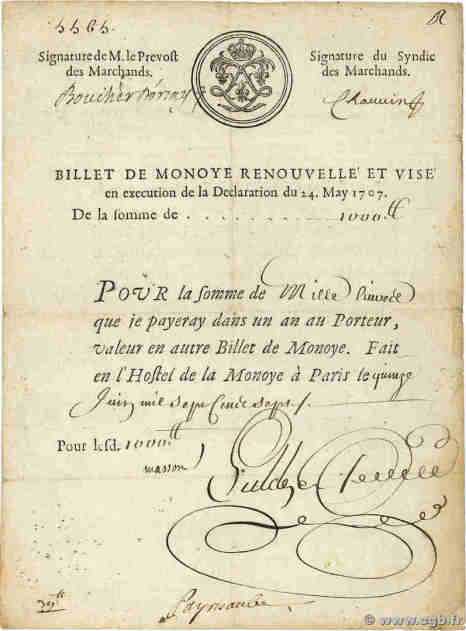 R
Signature de M. le Prevost
des Marchands.
Signature du Syndic
des Marchands.
BILLET DE MONOYE RENOUVELLE' ET VISE'
en execution de la Declaration du 24. May 1707.
De la somme de . . . . . . . . . . 1000ᵗᵗ
POUR la somme de Mille livres
que je payeray dans un an au Porteur,
valeur en autre Billet de Monoye. Fait
en l'Hostel de la Monoye à Paris le quinze
Juin mil sept Cent sept
Pour lesd. 1000ᵗᵗ
masson
© www.cgb.fr